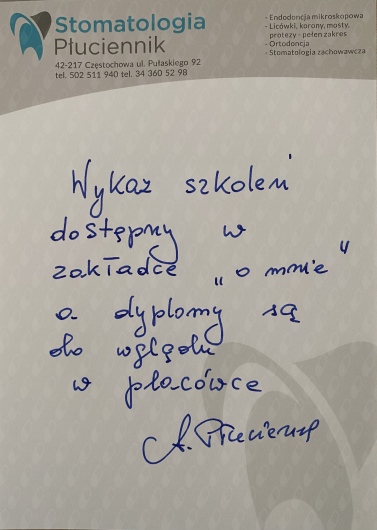 Stomatologia
Płuciennik
42-217 Częstochowa ul. Pułaskiego 92
tel. 502 511 940 tel. 34 360 52 98
- Endodoncja mikroskopowa
- Licówki, korony, mosty,
protezy - pełen zakres
- Ortodoncja
- Stomatologia zachowawcza
Wykaz szkoleń
dostępny w
zakładce „o mnie"
a dyplomy są
do wglądu
w placówce
A. Płuciennik